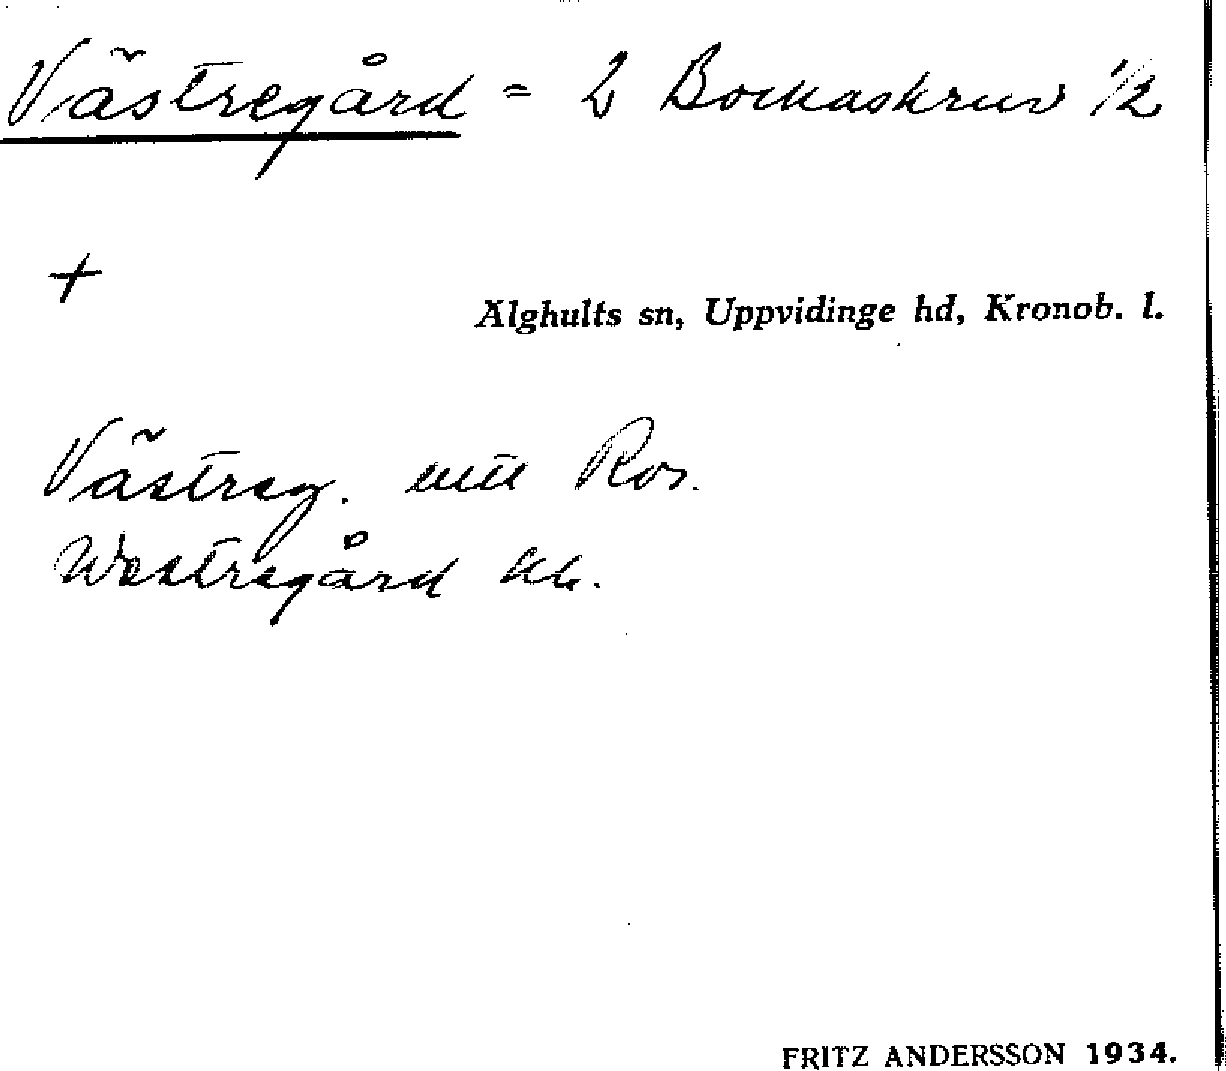 Västregård = 2 Bockaskruv 1/2
+
Älghults sn, Uppvidinge hd, Kronob. l.
Västreg. Ros.
Westregård
FRITZ ANDERSSON 1934.